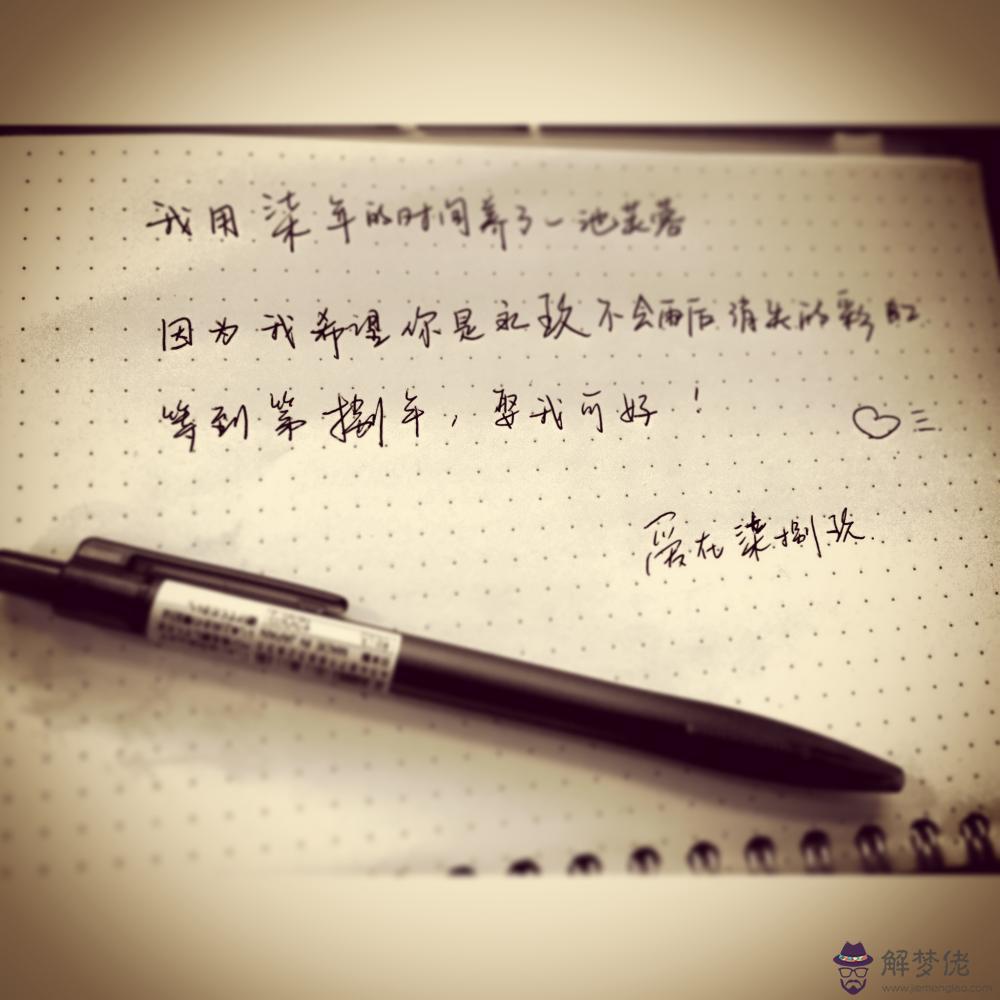 我用柒年的时间养了一池芙蓉
因为我希望你是永玖不会雨后消失的彩虹
等到第捌年，娶我可好！
♡三
爱在柒捌玖
解梦佬
www.jiemenglao.com